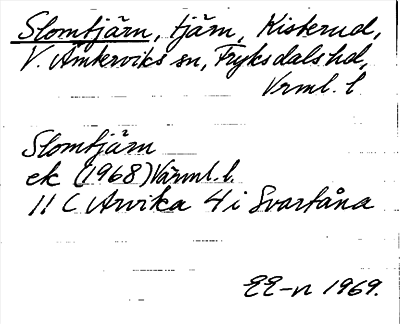 Slomtjärn, tjärn, Kisterud,
V. Ämterviks sn, Fryksdals hd,
Vrml. l.
Slomtjärn
ek (1968) Värml. l.
11 C Arvika 4 i Svartåna
EE-n 1969.